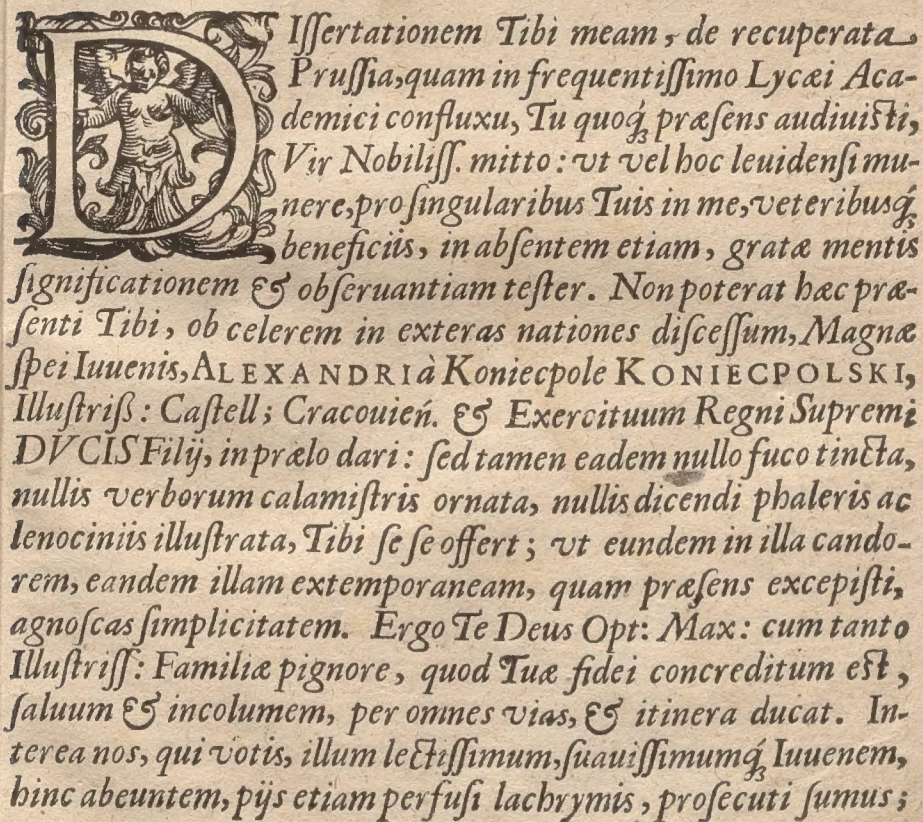 DIſſertationem Tibi meam, de recuperata
Pruſſia, quam in frequentiſſimo Lycæi Aca-
demici confluxu, Tu quoq́ꝫ præſens audiuiſti,
Vir Nobiliſſ. mitto: vt vel hoc leuidenſi mu-
nere, pro ſingularibus Tuis in me, veteribusq́ꝫ
beneficiis, in abſentem etiam, gratæ mentis
ſignificationem & obſeruantiam teſter. Non poterat hæc præ-
ſenti Tibi, ob celerem in exteras nationes diſceſſum, Magnæ
ſpei Iuuenis, ALEXANDRI à Koniecpole KONIECPOLSKI,
Illuſtriß: Caſtell; Cracouień. & Exercituum Regni Supremi
DVCIS Filij, in prælo dari: ſed tamen eadem nullo fuco tincta,
nullis verborum calamiſtris ornata, nullis dicendi phaleris ac
lenociniis illuſtrata, Tibi ſe ſe offert; vt eundem in illa cando-
rem, eandem illam extemporaneam, quam præſens excepiſti,
agnoſcas ſimplicitatem. Ergo Te Deus Opt: Max: cum tanto
Illuſtriſſ: Familiæ pignore, quod Tuæ fidei concreditum eſt,
ſaluum & incolumem, per omnes vias, & itinera ducat. In-
terea nos, qui votis, illum lectiſſimum, ſuauiſſimumq́ꝫ Iuuenem,
hinc abeuntem, pijs etiam perfuſi lachrymis, proſecuti ſumus;